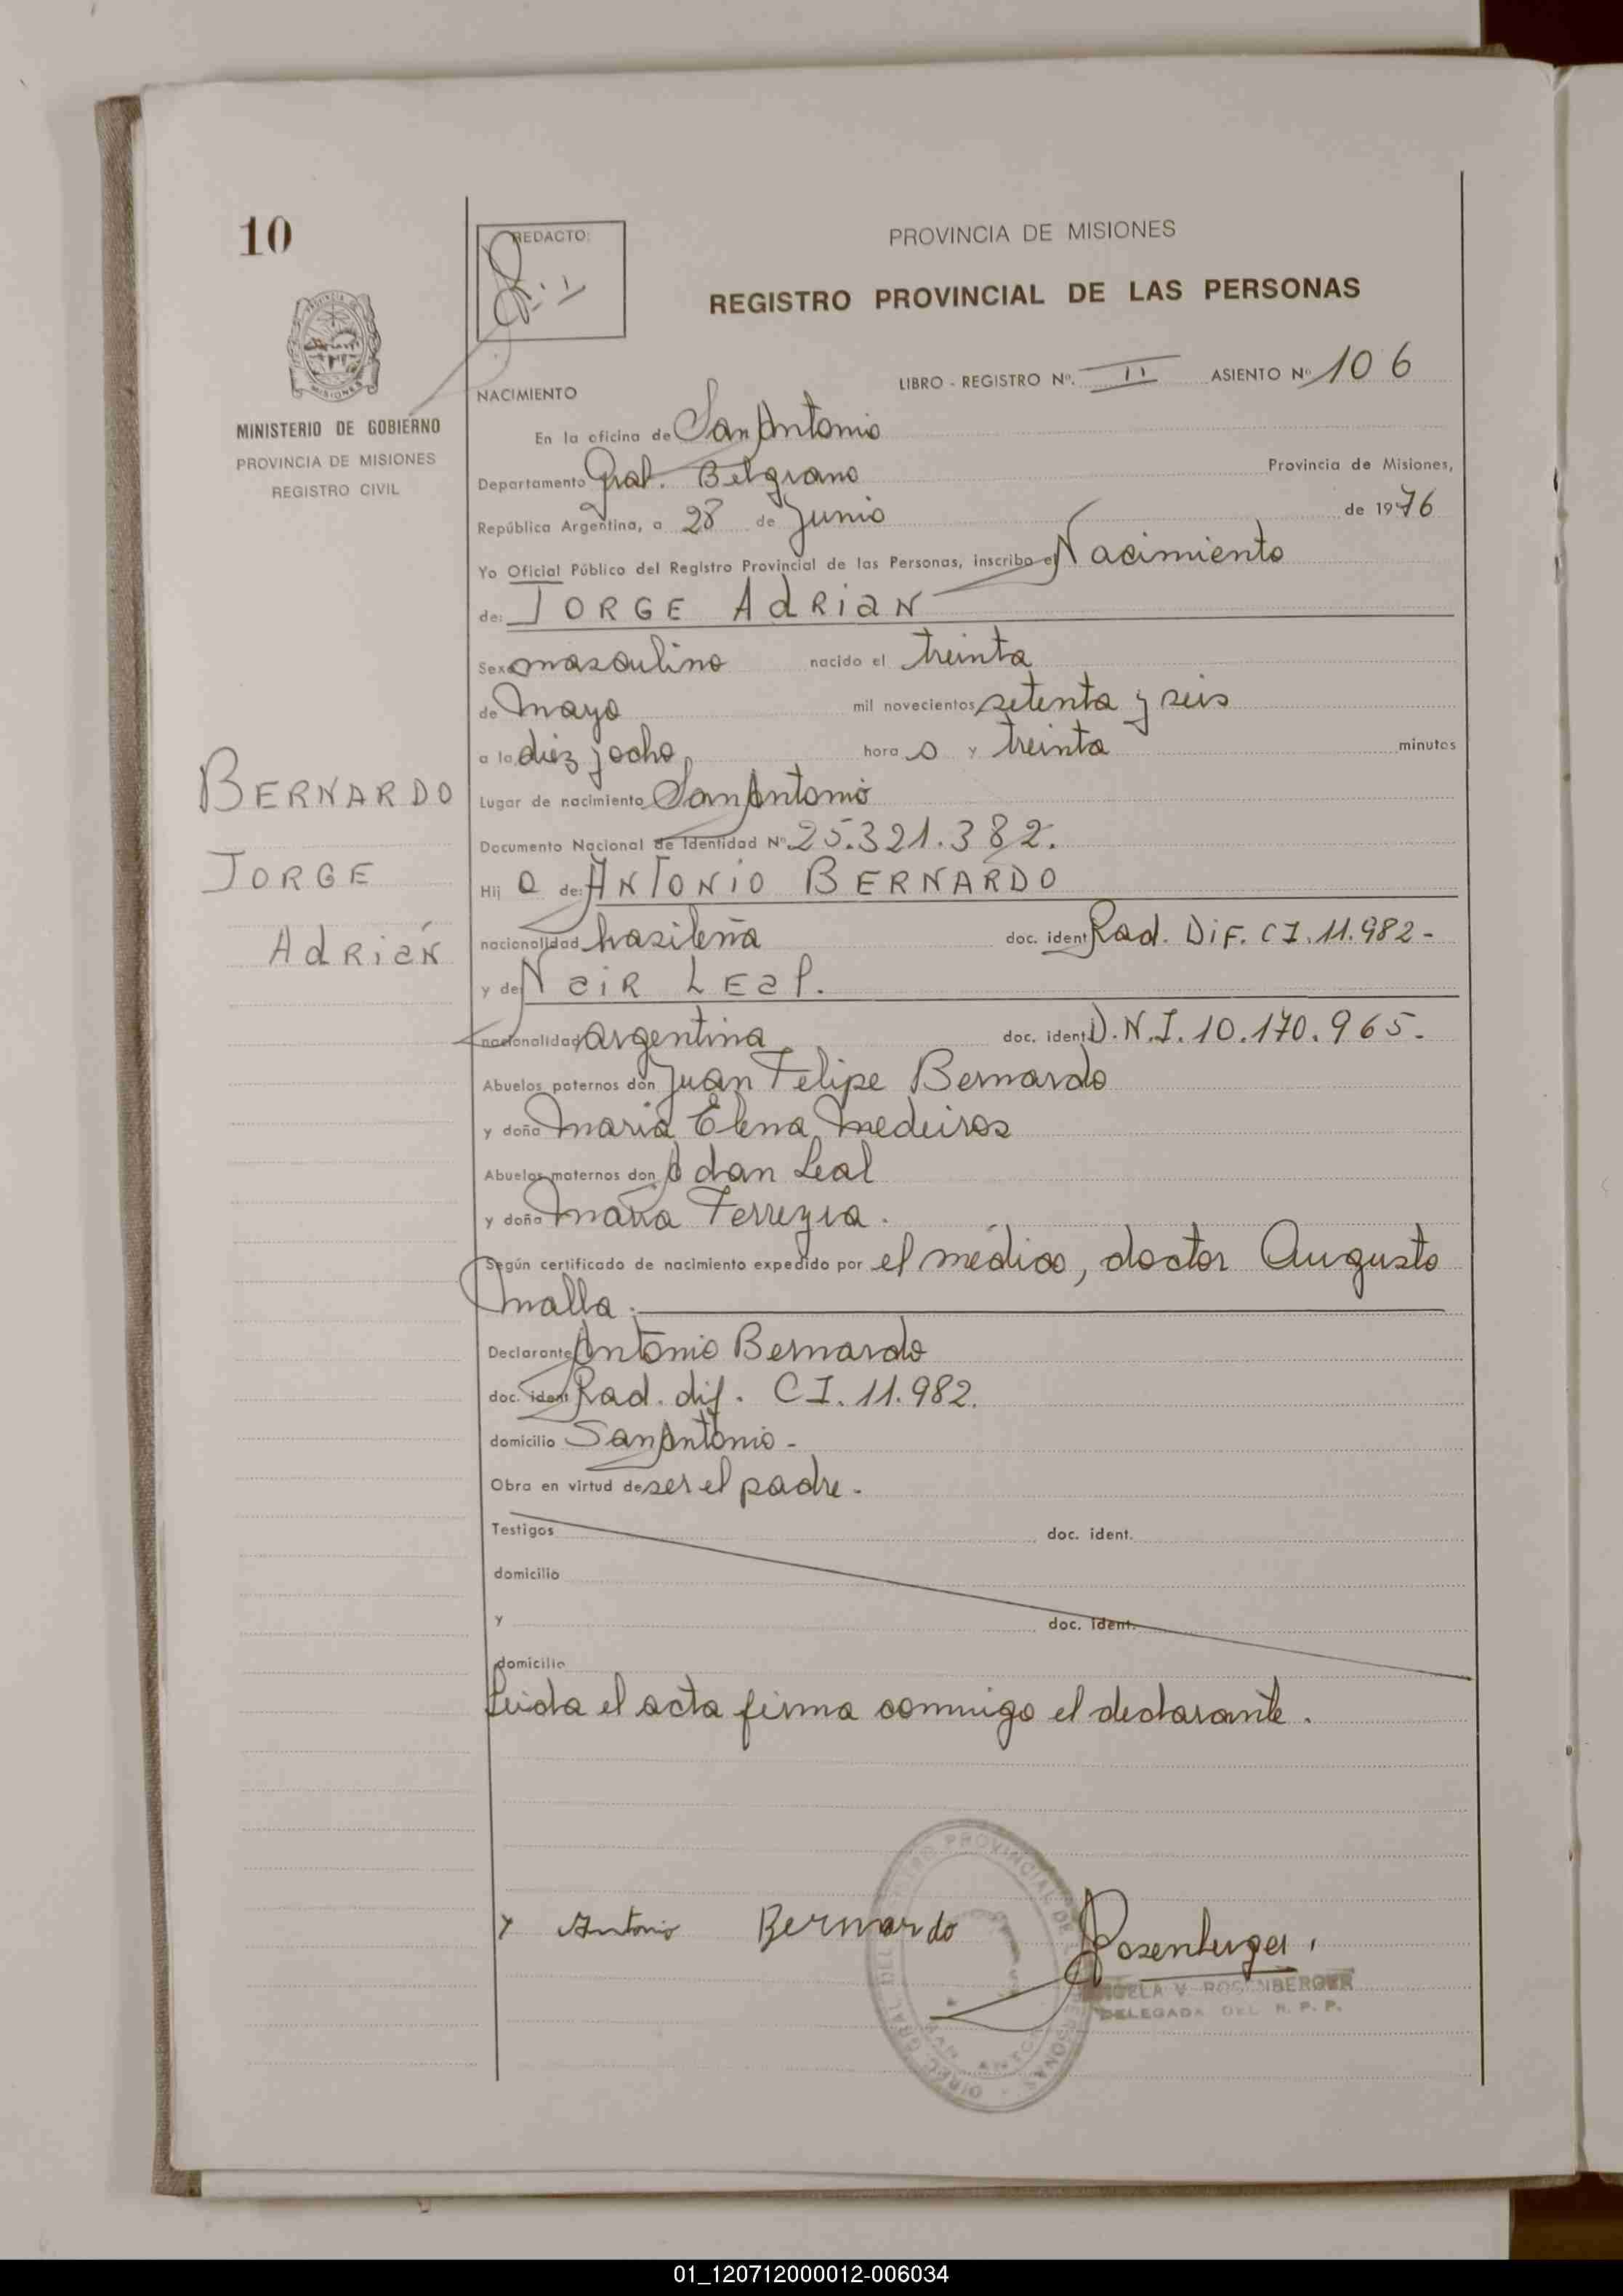 10
REDACTO:
PROVINCIA DE MISIONES
REGISTRO PROVINCIAL DE LAS PERSONAS
LIBRO - REGISTRO Nº. II ASIENTO Nº 106
NACIMIENTO
MINISTERIO DE GOBIERNO
PROVINCIA DE MISIONES
REGISTRO CIVIL
En la oficina de San Antonio
Departamento Gral. Belgrano Provincia de Misiones,
República Argentina, a 28 de Junio de 1976
Yo Oficial Público del Registro Provincial de las Personas, inscribo el Nacimiento
de: JORGE AdRiaN
Sexo masculino nacido el treinta
de mayo mil novecientos setenta y seis
a la diez y ocho hora s y treinta minutos
BERNARDO
JORGE
AdRiáN
Lugar de nacimiento San Antonio
Documento Nacional de Identidad Nº 25.321.382.
Hij o de: ANTONiO BERNARDO
nacionalidad brasileña doc. ident Rad. DiF. CI. 11.982-
y de NaiR LEal.
nacionalidad argentina doc. ident D.N.I. 10.170.965.
Abuelos paternos don Juan Felipe Bernardo
y doña Maria Elena Medeiros
Abuelos maternos don Adan Leal
y doña Maria Ferreyra.
Según certificado de nacimiento expedido por el médico, doctor Augusto
Malla.
Declarante Antonio Bernardo
doc. ident Rad. dif. CI. 11.982.
domicilio San Antonio-
Obra en virtud de ser el padre.
Testigos doc. ident.
domicilio
y doc. ident.
domicilio
Leida el acta firma conmigo el declarante.
Antonio Bernardo
Rosenberger
V. ROSENBERGER
DELEGADA DEL R. P. P.
01_120712000012-006034